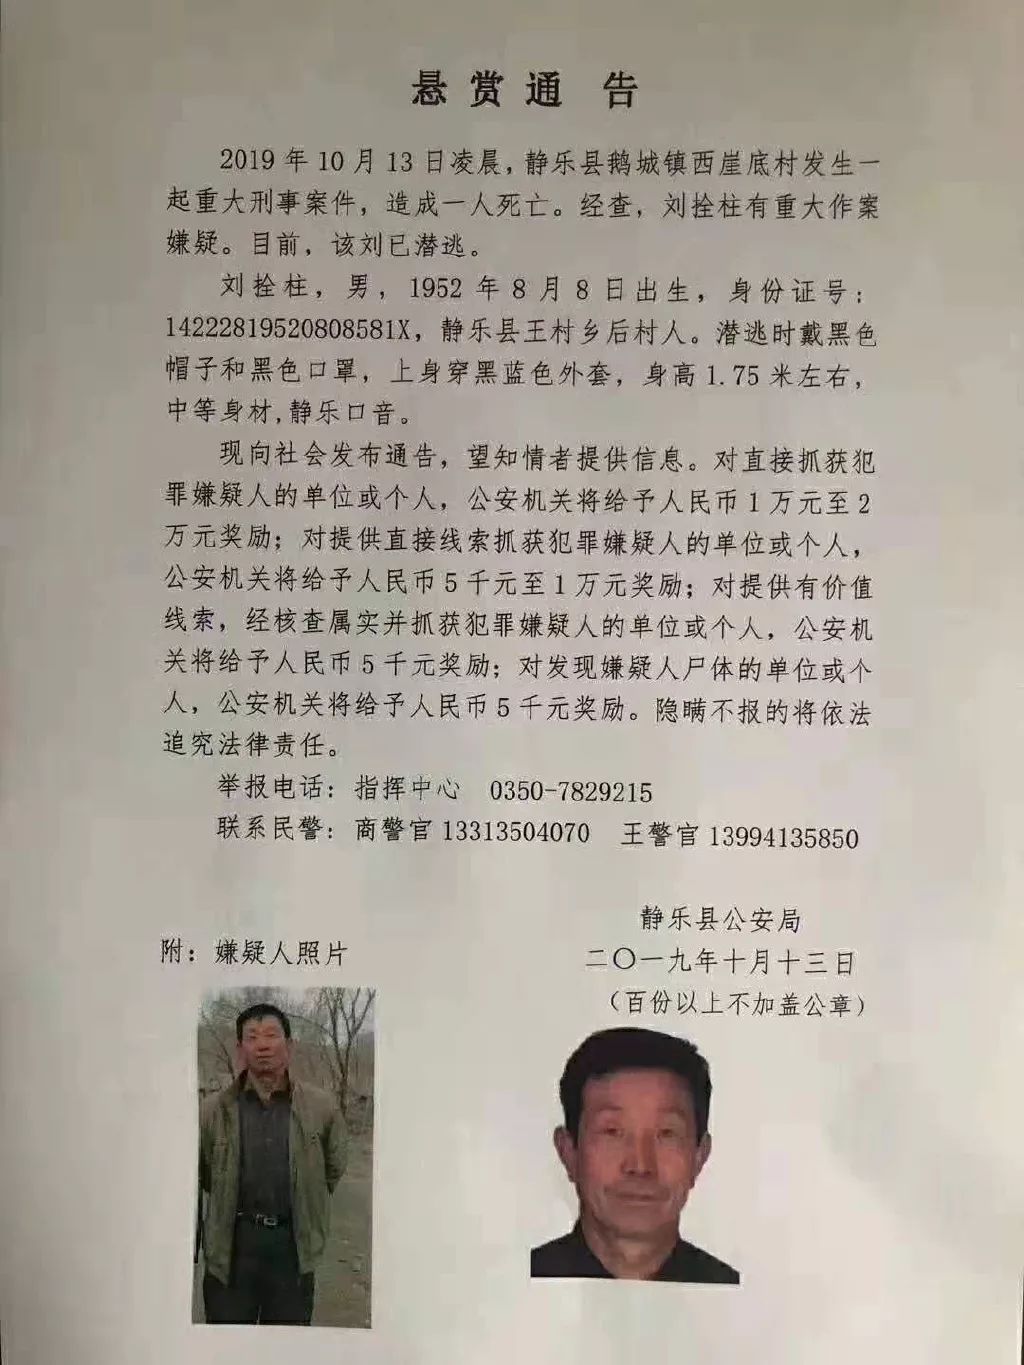 悬赏通告
2019年10月13日凌晨，静乐县鹅城镇西崖底村发生一
起重大刑事案件，造成一人死亡。经查，刘拴柱有重大作案
嫌疑。目前，该刘已潜逃。
刘拴柱，男，1952年8月8日出生，身份证号：
14222819520808581X，静乐县王村乡后村人。潜逃时戴黑色
帽子和黑色口罩，上身穿黑蓝色外套，身高1.75米左右，
中等身材,静乐口音。
现向社会发布通告，望知情者提供信息。对直接抓获犯
罪嫌疑人的单位或个人，公安机关将给予人民币1万元至2
万元奖励；对提供直接线索抓获犯罪嫌疑人的单位或个人，
公安机关将给予人民币5千元至1万元奖励；对提供有价值
线索，经核查属实并抓获犯罪嫌疑人的单位或个人，公安机
关将给予人民币5千元奖励；对发现嫌疑人尸体的单位或个
人，公安机关将给予人民币5千元奖励。隐瞒不报的将依法
追究法律责任。
举报电话：指挥中心 0350-7829215
联系民警：商警官13313504070 王警官13994135850
静乐县公安局
附：嫌疑人照片
二〇一九年十月十三日
（百份以上不加盖公章）